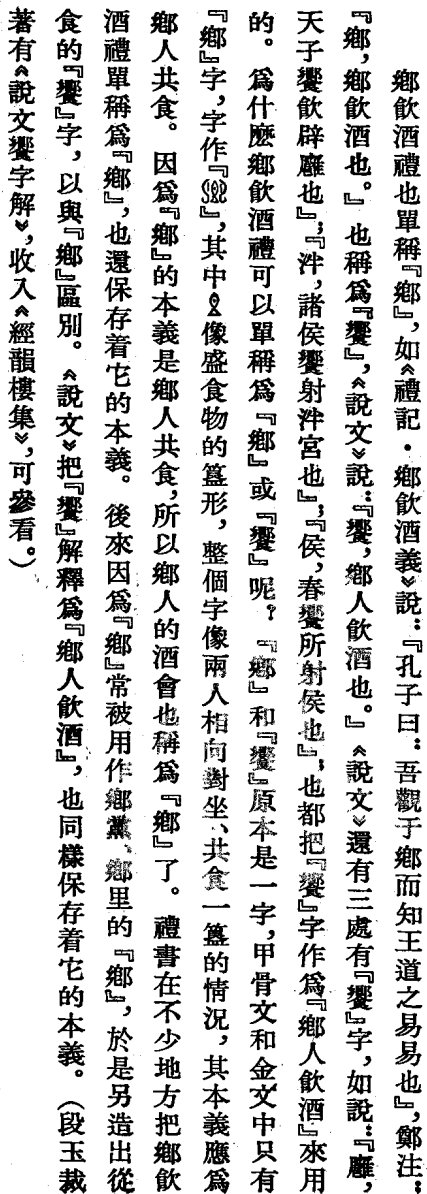 鄉飲酒禮也單稱『鄉』，如《禮記·鄉飲酒義》說：『孔子曰：吾觀于鄉而知王道之易易也』，鄭注：
『鄉，鄉飲酒也。』也稱爲『饗』，《說文》說：『饗，鄉人飲酒也。』《說文》還有三處有『饗』字，如說：『廱，
天子饗飲辟廱也』；『泮，諸侯饗射泮宮也』；『侯，春饗所射侯也』；也都把『饗』字作爲『鄉人飲酒』來用
的。爲什麽鄉飲酒禮可以單稱爲『鄉』或『饗』呢？『鄉』和『饗』原本是一字，甲骨文和金文中只有
『鄉』字，字作『』，其中像盛食物的簋形，整個字像兩人相向對坐、共食一簋的情況，其本義應爲
鄉人共食。因爲『鄉』的本義是鄉人共食，所以鄉人的酒會也稱爲『鄉』了。禮書在不少地方把鄉飲
酒禮單稱爲『鄉』，也還保存着它的本義。後來因爲『鄉』常被用作鄉黨、鄉里的『鄉』，於是另造出從
食的『饗』字，以與『鄉』區別。《說文》把『饗』解釋爲『鄉人飲酒』，也同樣保存着它的本義。（段玉裁
著有《說文饗字解》，收入《經韻樓集》，可參看。）